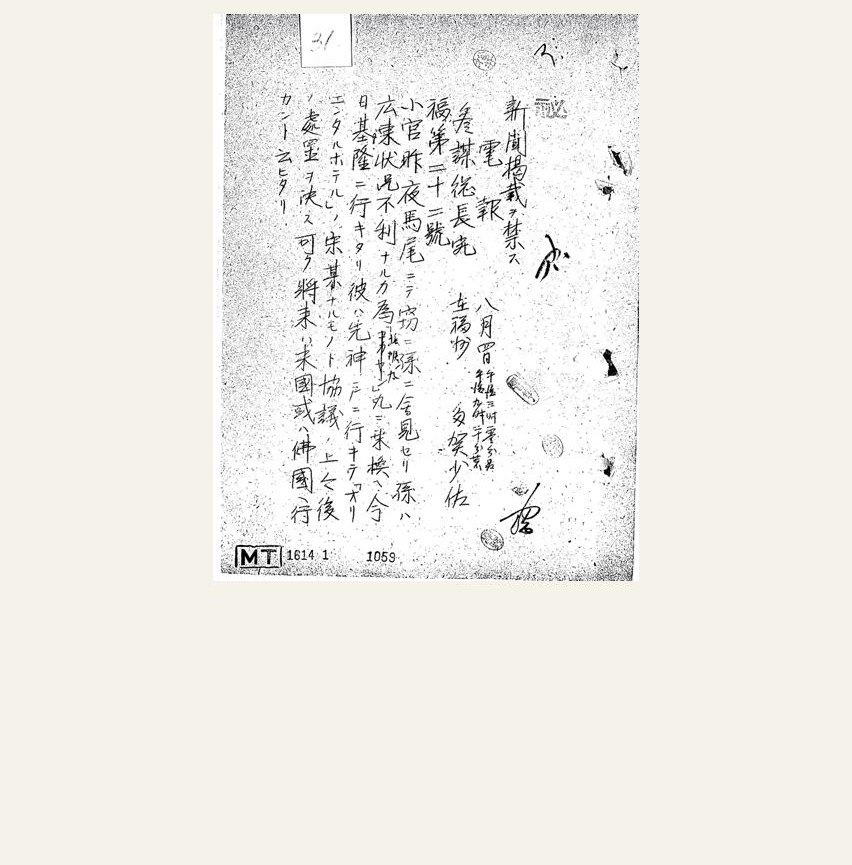 31
新聞掲載ヲ禁ス
電報
八月四日
午後三時零分発
午後九時二十分着
参謀総長宛
在福州 多賀少佐
福第二十二號
小官昨夜馬尾ニテ窃ニ孫ニ會見セリ孫ハ
広東状况不利ナルカ為
丸ニ乗換ヘ今
日基隆ニ行キタリ彼ハ先神戸ニ行キテ「オリ
エンタルホテル」ノ宋某ナルモノト協議ノ上今後
ノ處置ヲ決ス可ク將来ハ米國或ハ佛國ヘ行
カント云ヒタリ
MT 1614 1 1059